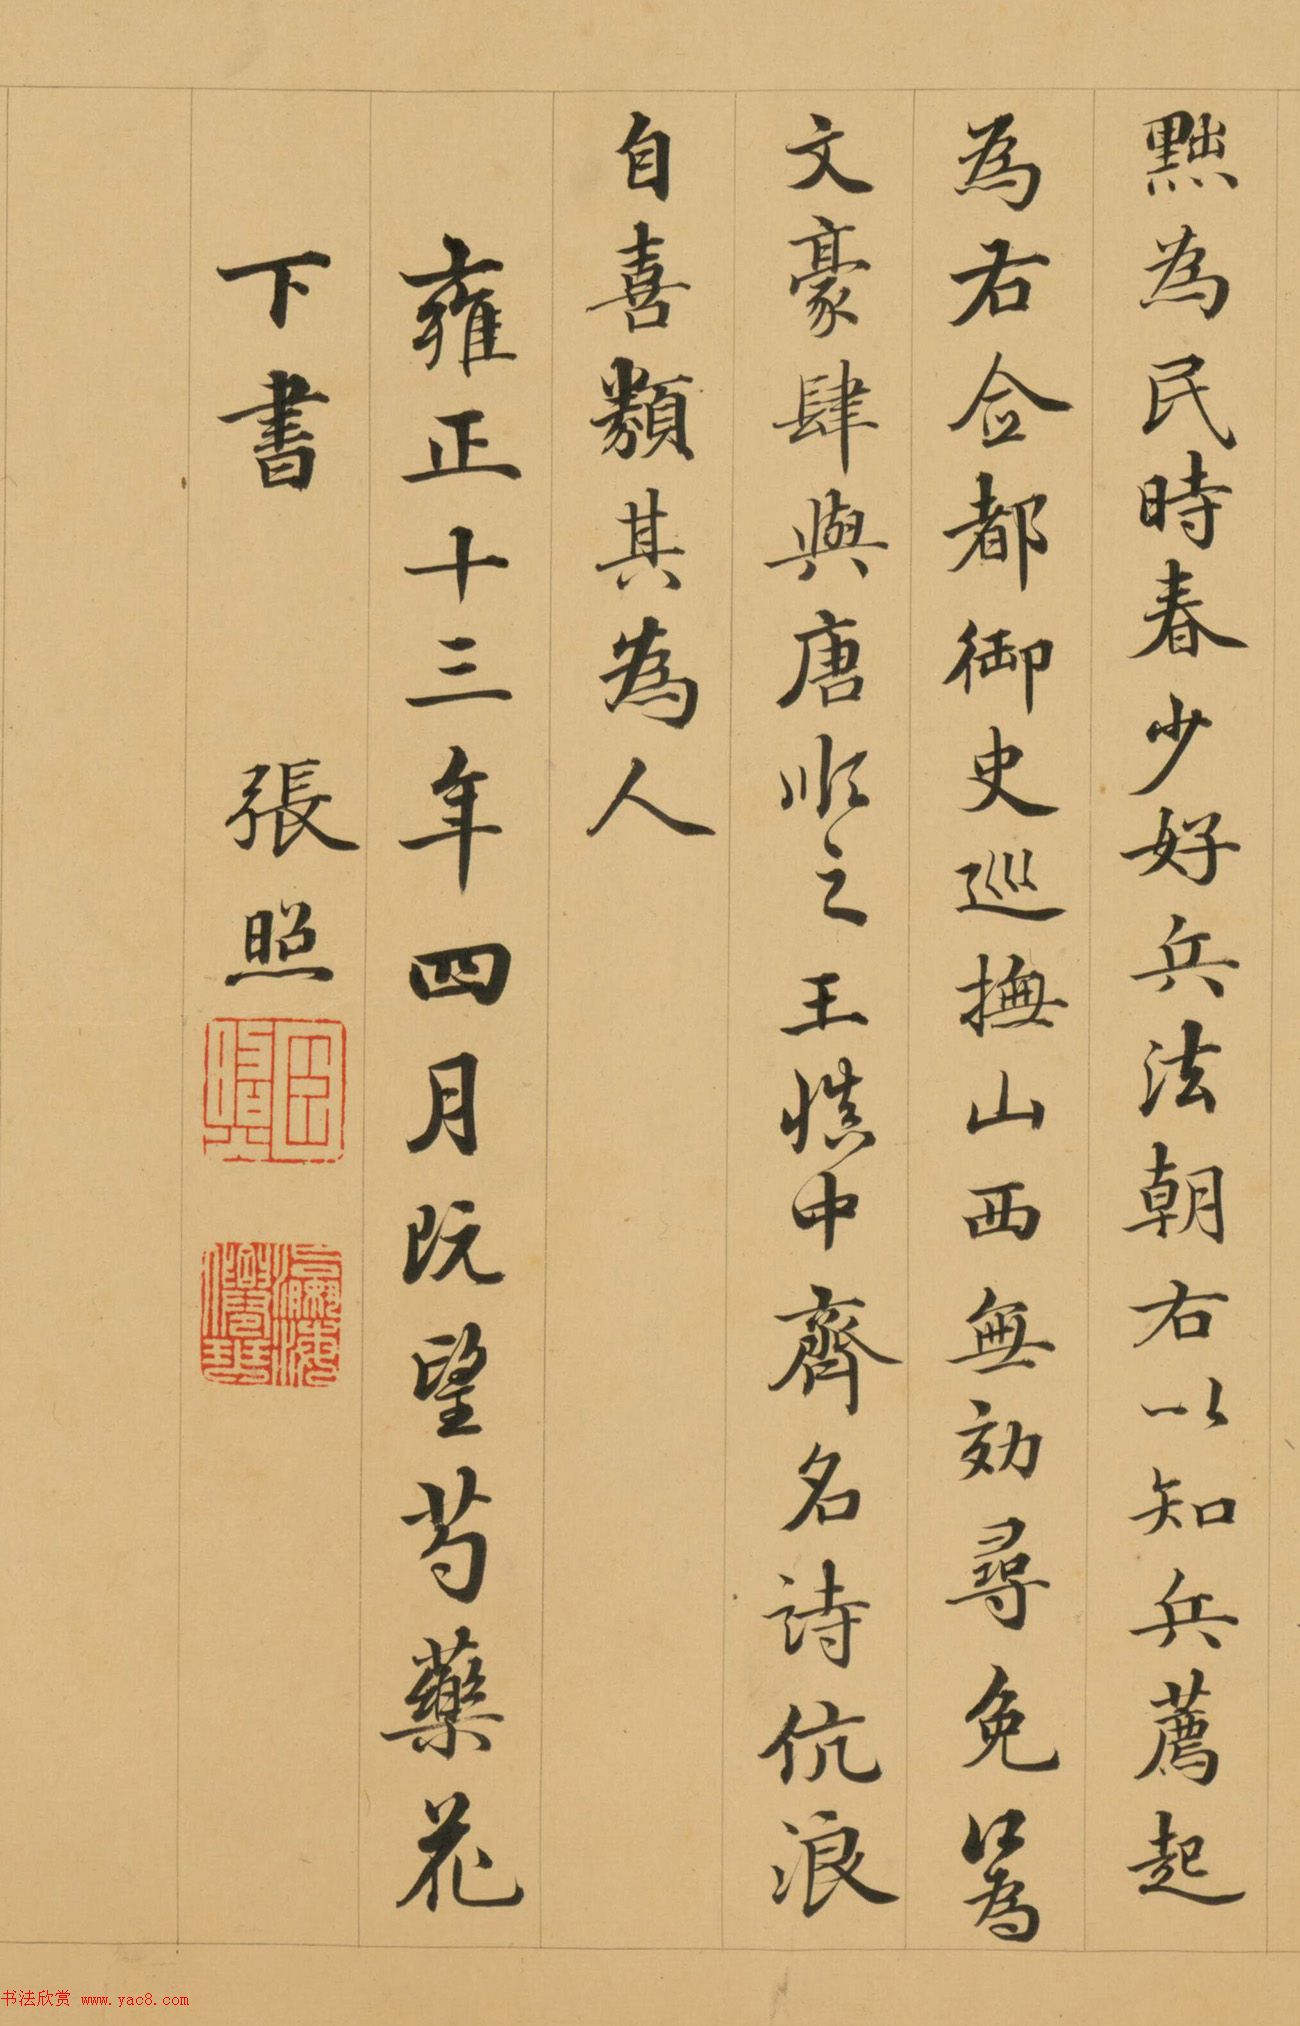 黜為民時春少好兵法朝右以知兵薦起
為右僉都御史巡撫山西無効尋免為
文豪肆與唐順之王慎中齊名詩伉浪
自喜類其為人
雍正十三年四月既望芍藥花
下書 張照
瀛海僊琴
书法欣赏 www.yac8.com